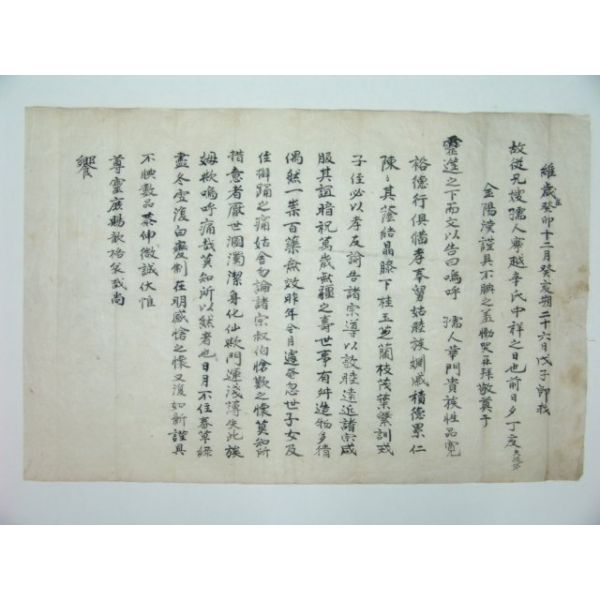 維歲癸卯十二月癸亥朔二十六日戊子卽我
故從兄嫂孺人寧越辛氏中祥之日也前日夕丁亥
金陽漢謹具不腆之羞慟哭再拜敬奠于
靈筵之下而文以告曰嗚呼 孺人華門貴族性品寬
裕德行俱備孝奉舅姑睦族姻戚積德累仁
陳陳其蔭結晶膝下桂玉芝蘭枝茂葉繁訓戒
子侄必以孝友諭告諸宗導以敦睦遠近諸宗咸
服其誼暗祝萬歲無疆之壽世事有舛造物多猜
偶然一祟百藥無效昨年今月遽爾忽世子女及
侄擗踊之痛姑舍勿論諸宗叔伯愴歎之懷莫知所
措意者厭世溷濁潔身化仙歟門運淺薄失此族
姆歟嗚呼痛哉莫知所以然者也日月不住春草綠
盡冬雪復白變制在明感愴之懷又復如新謹具
不腆數品恭伸微誠伏惟
尊靈庶賜歆格哀哉尚
饗